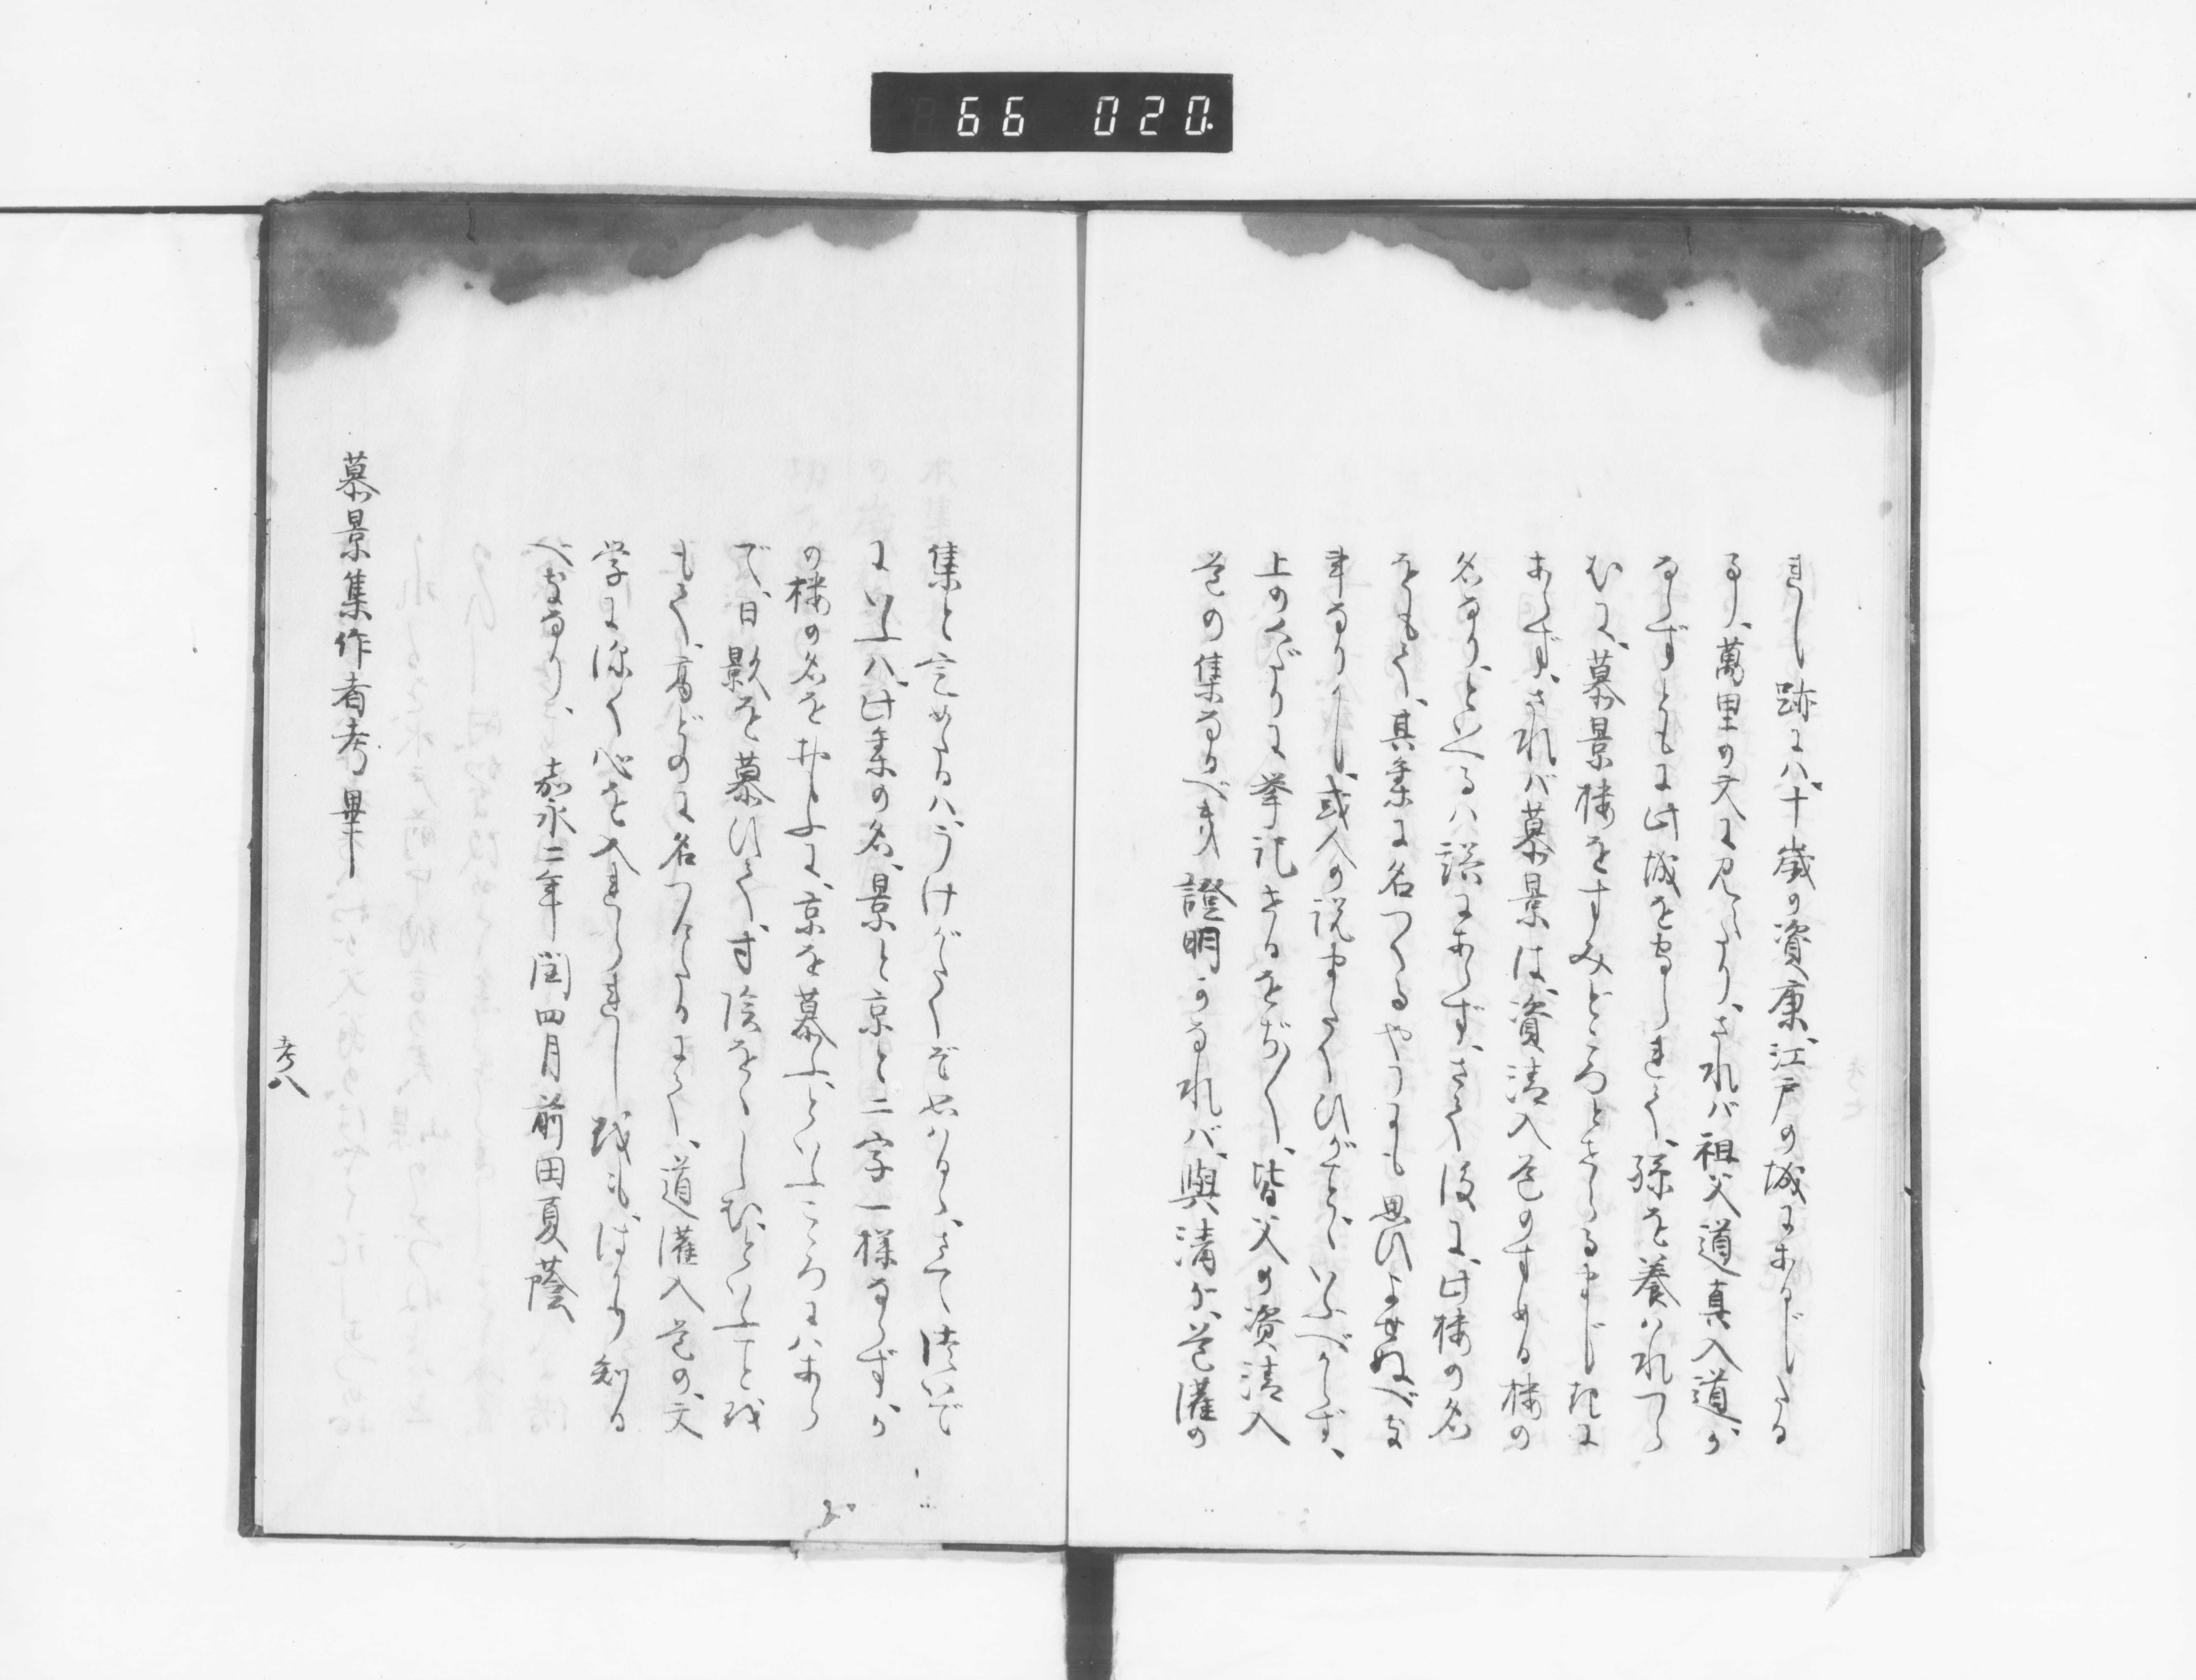 66 020.
れし跡に八十歳の資康、江戸の城にあるじたる
事、萬里の文に見えたり、されバ祖父道真入道が、
ならずともに此城を守られて、孫を養ハれつら
むに、慕景楼をすみどころとせらるまじきに
あらず、されバ慕景は、資清入道のすめる楼の
名なり、といへるハ誤にあらず、さて後に、此楼の名
をもて、其集に名つくるやうにも思ひよせぬべき
事なりかし、或人の説またくひがことゝいふべからず、
上のくだりに挙記せるをぢ〳〵、皆父の資清入
道の集なるべき證明かなれバ、與清が道灌の
集と定めたるハ、うけがたくぞ覚ゆる、さて次いで
にいふハ、此集の名、景と京と二字一様ならず、か
の楼の名をおもふに、京を慕ふ、といふこころにハあら
で、日影を慕ひて、寸陰ををしむ、といふことを
もて、高どのに名つけたるにて、道灌入道の、文
学に深く心を入れられしをも、はかり知る
べきなり、嘉永二年閏四月前田夏蔭
慕景集作者考畢
考八